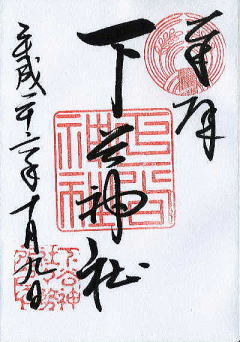 奉拝
下谷神社
平成二十六年十月九日
下谷神社
下谷神
社々務
所之印